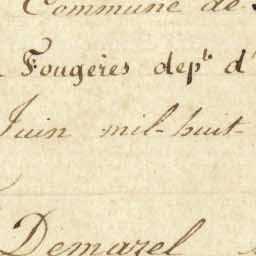 Commune de
Fougères dept d'
Juin mil-huit-
Demazel